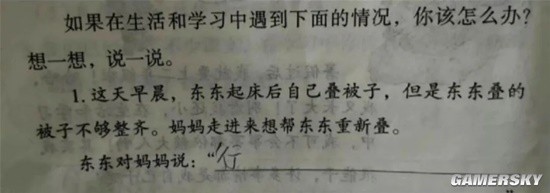 如果在生活和学习中遇到下面的情况，你该怎么办？
想一想，说一说。
1.这天早晨，东东起床后自己叠被子，但是东东叠的
被子不够整齐。妈妈走进来想帮东东重新叠。
东东对妈妈说：“行
GAMERSKY